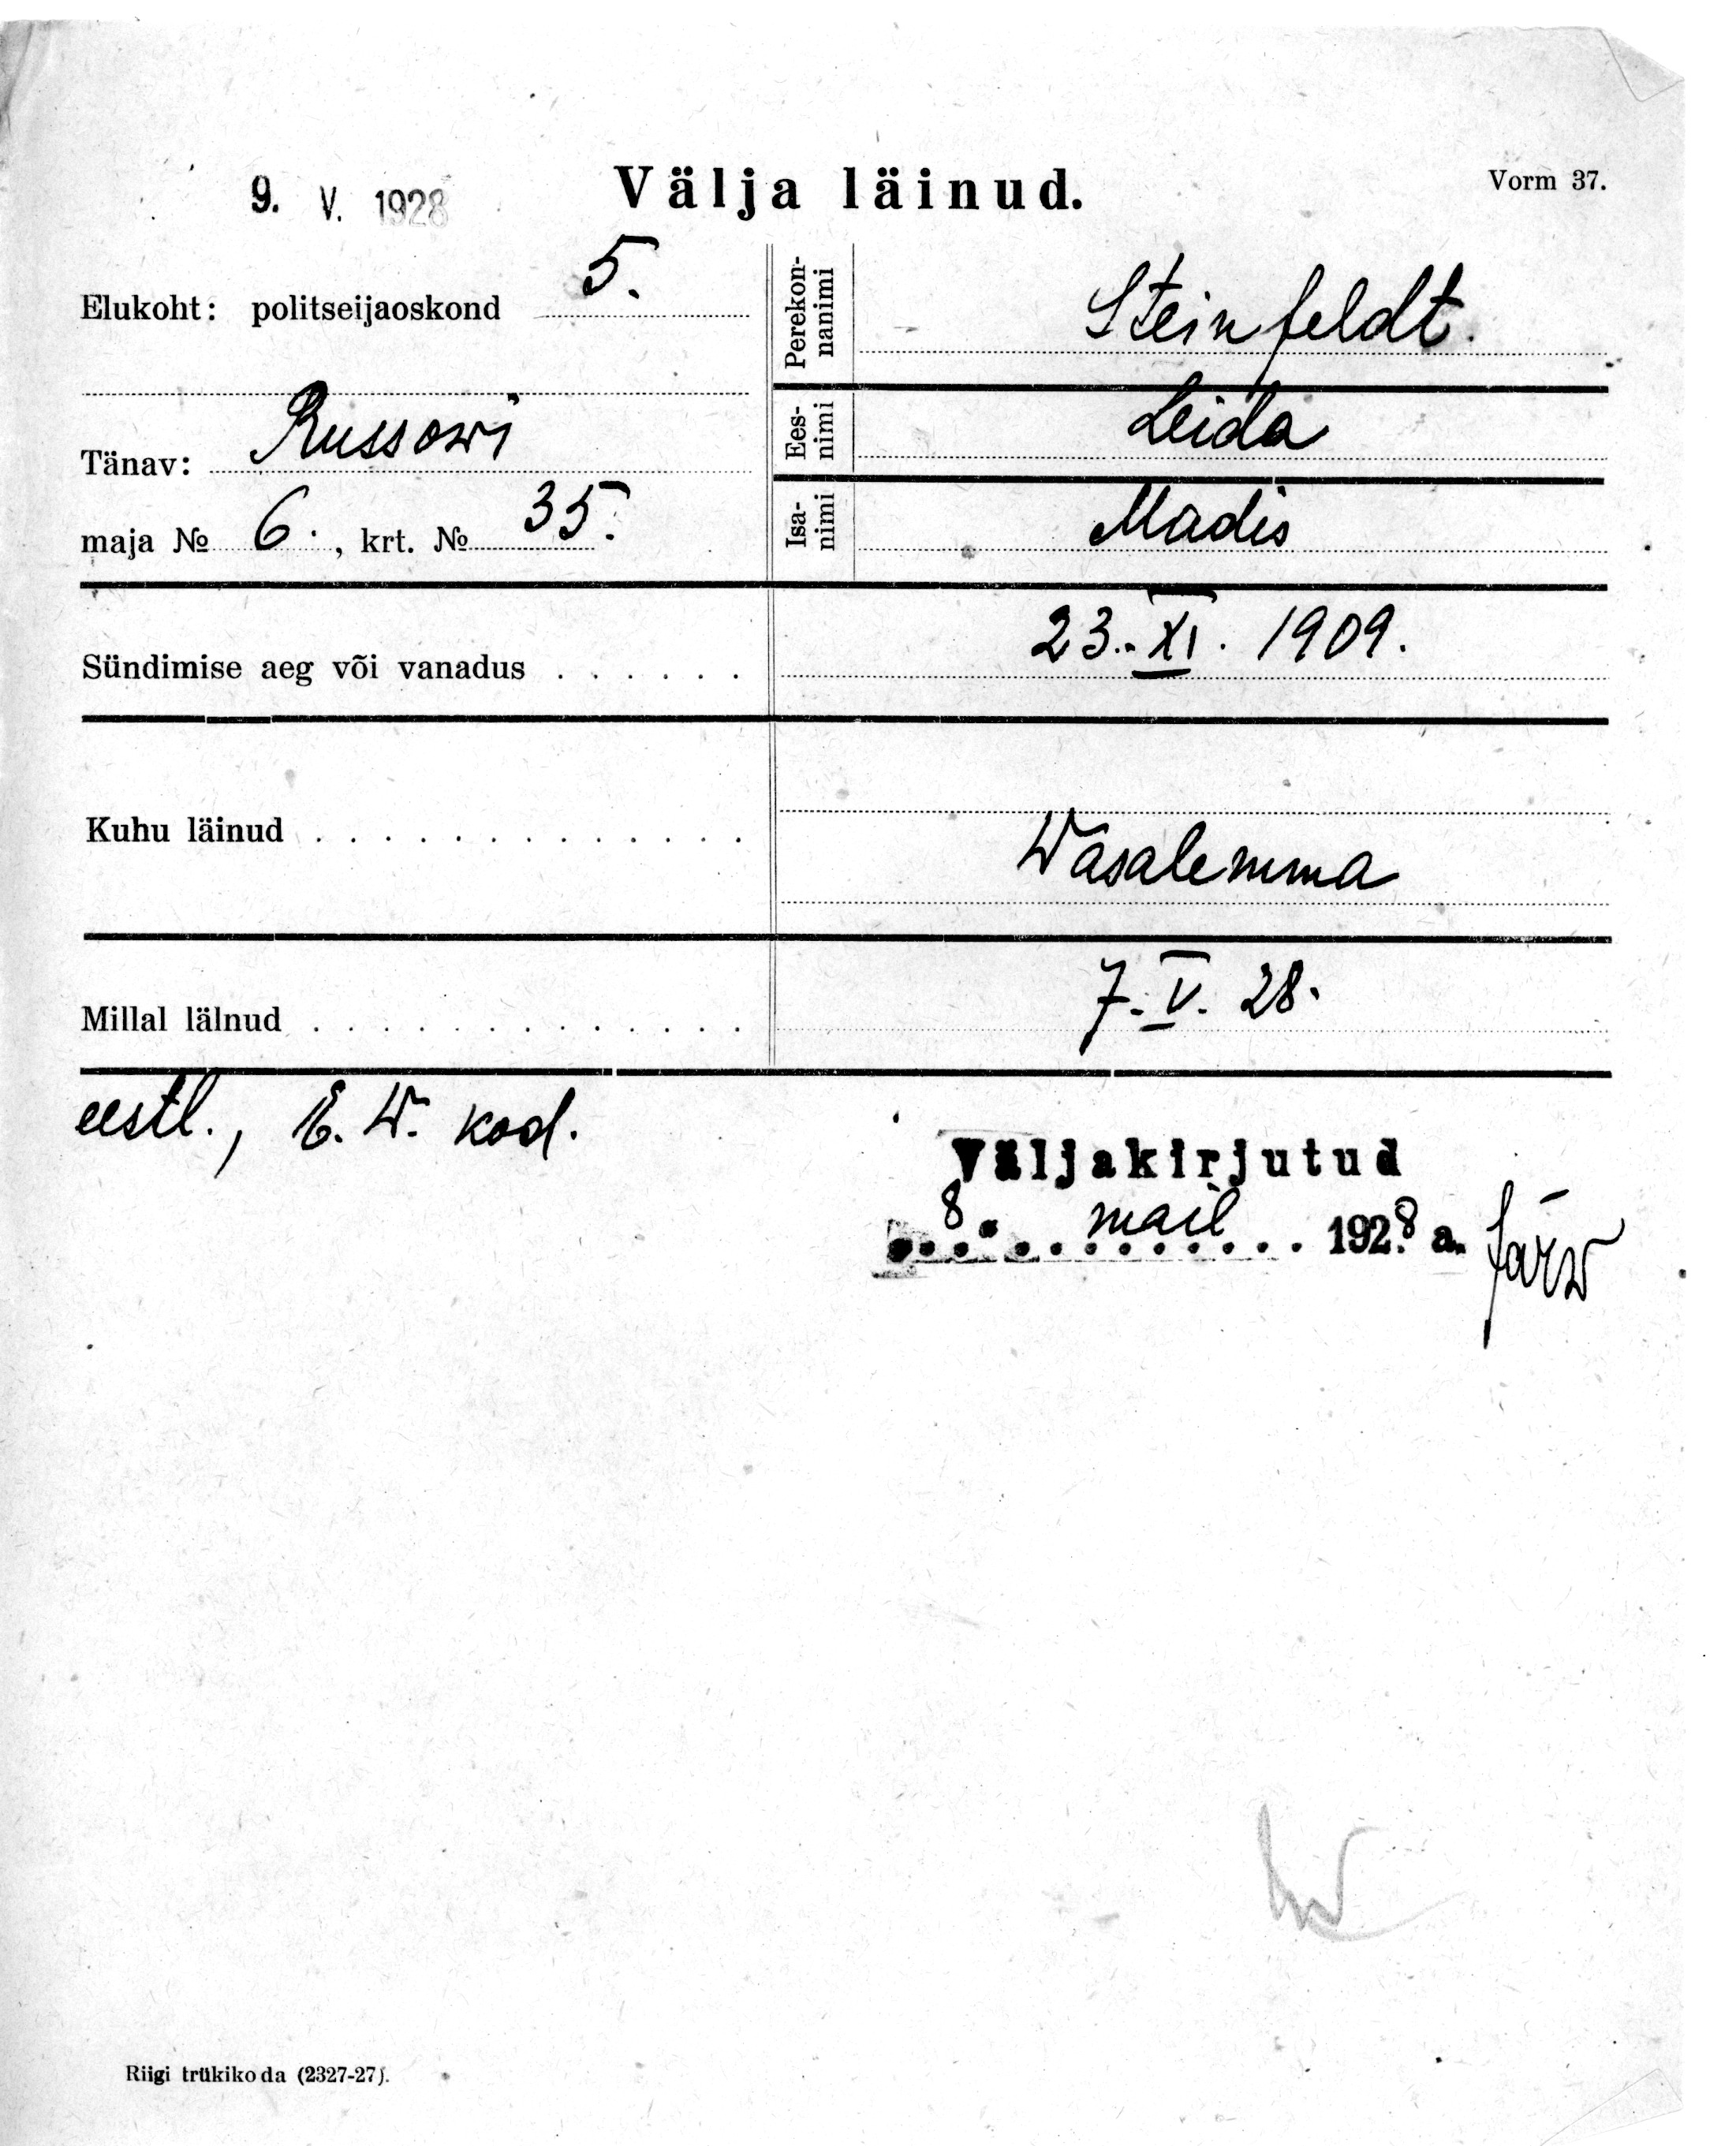 9. V. 1928 Välja läinud. Vorm 37.
Elukoht: politseijaoskond 5.
Tänav: Russowi
maja № 6., krt. № 35.
Perekon-
nanimi Steinfeldt.
Ees-
nimi Leida
Isa-
nimi Madis
Sündimise aeg või vanadus . . . . . . 23. XI. 1909.
Kuhu läinud . . . . . . . . . . . . . Wasalemma
Millal lälnud . . . . . . . . . . . . . 7. V. 28.
eestl., E. W. kod.
Väljakirjutud
8. mail 1928 a. Järw
Riigi trükikoda (2327-27).